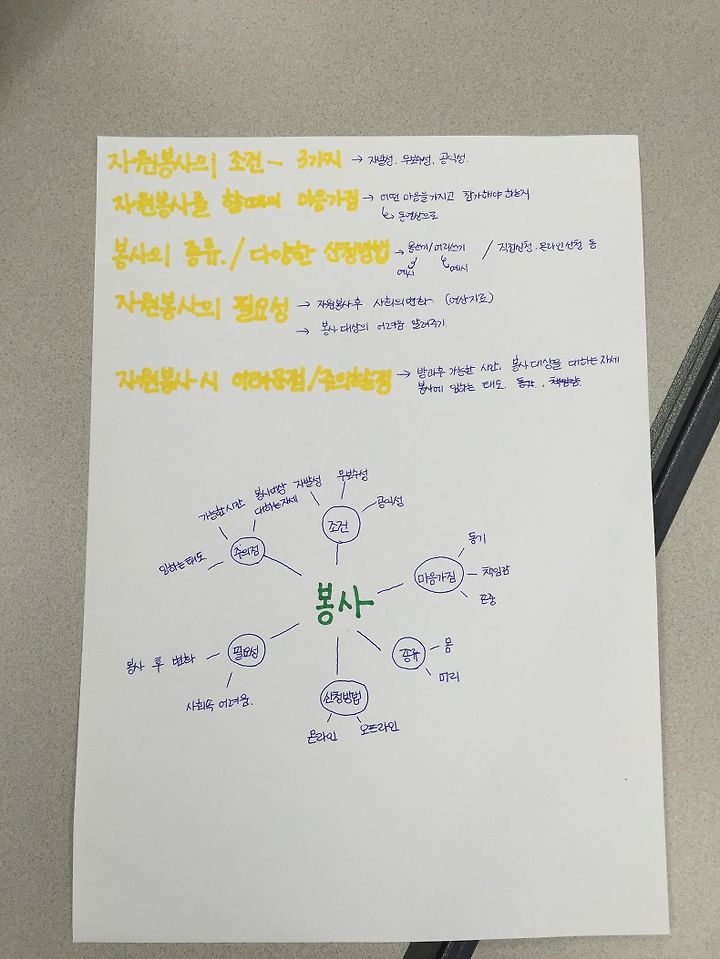 자원봉사의 조건 - 3가지 → 자발성. 무보수성. 공익성.
자원봉사를 할때의 마음가짐 → 어떤 마음을 가지고 참가해야 하는지
↳ 동영상으로
봉사의 종류. / 다양한 신청방법 → 몸쓰기/머리쓰기 / 직접신청. 온라인 신청 등
예시 예시
자원봉사의 필요성 → 자원봉사 후 사회의 변화 (영상자료)
→ 봉사 대상의 어려움 알려주기
자원봉사 시 어려운점/주의할점 → 방과후 가능한 시간. 봉사대상을 대하는 자세
봉사에 임하는 태도. 동기, 책임감
봉사
조건
자발성
무보수성
공익성
마음가짐
동기
책임감
존중
종류
몸
머리
신청방법
온라인
오프라인
필요성
봉사 후 변화
사회속 어려움.
주의점
임하는 태도
가능한 시간
봉사대상
대하는 자세